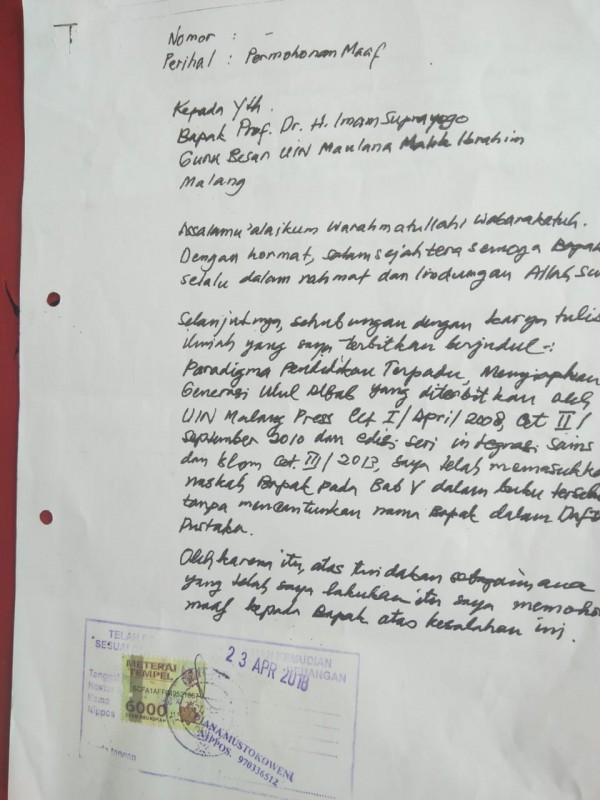 Nomor : -
Perihal : Permohonan Maaf
Kepada Yth.
Bapak Prof. Dr. H. Imam Suprayogo
Guru Besar UIN Maulana Malik Ibrahim
Malang
Assalamu'alaikum Warahmatullahi Wabarakatuh.
Dengan hormat, salam sejahtera semoga Bapak
selalu dalam rahmat dan lindungan Allah Sw
Selanjutnya, sehubungan dengan karya tulis
ilmiah yang saya terbitkan berjudul :
Paradigma Pendidikan Terpadu, Menyiapkan
Generasi Ulul Albab yang diterbitkan oleh
UIN Malang Press Cet I / April / 2008, Cet II /
September 2010 dan edisi seri integrasi sains
dan Islam Cet. III / 2013, saya telah memasukka
naskah Bapak pada Bab V dalam buku terseb
tanpa mencantumkan nama Bapak dalam Daft
Pustaka.
Oleh karena itu, atas tindakan sebagaimana
yang telah saya lakukan itu saya memohon
maaf kepada Bapak atas kesalahan ini.
TELAH
KEMUDIAN
SESUAI
23 APR 2018
METERAI
TEMPEL
Tanggal
Nama
Nippos
6000
ENAM RIBU RUPIAH
DIANA MUSTOKOWENI
NIPPOS. 970336512